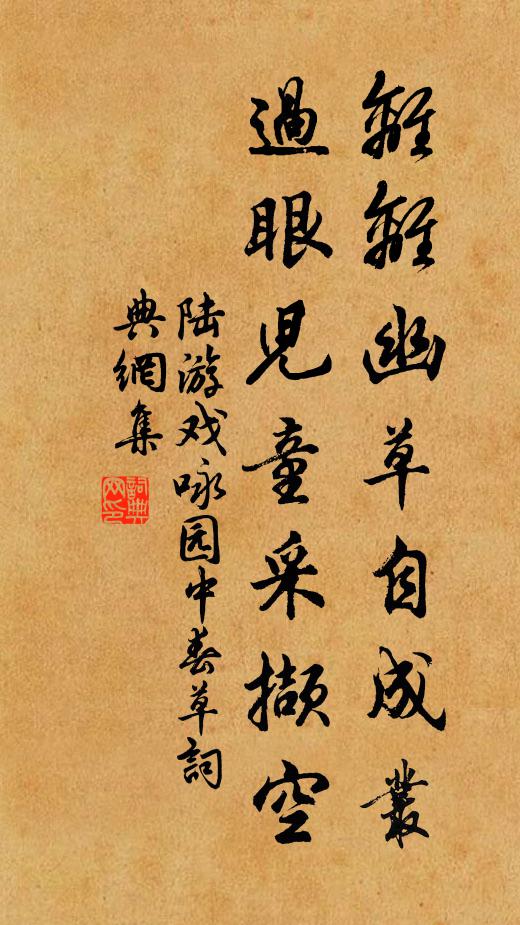 離離幽草自成叢
過眼兒童采擷空
陆游戏咏园中春草詞
典網集
詞典網印